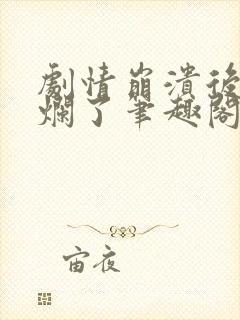 劇情崩潰後
爛了筆趣閣
宙夜